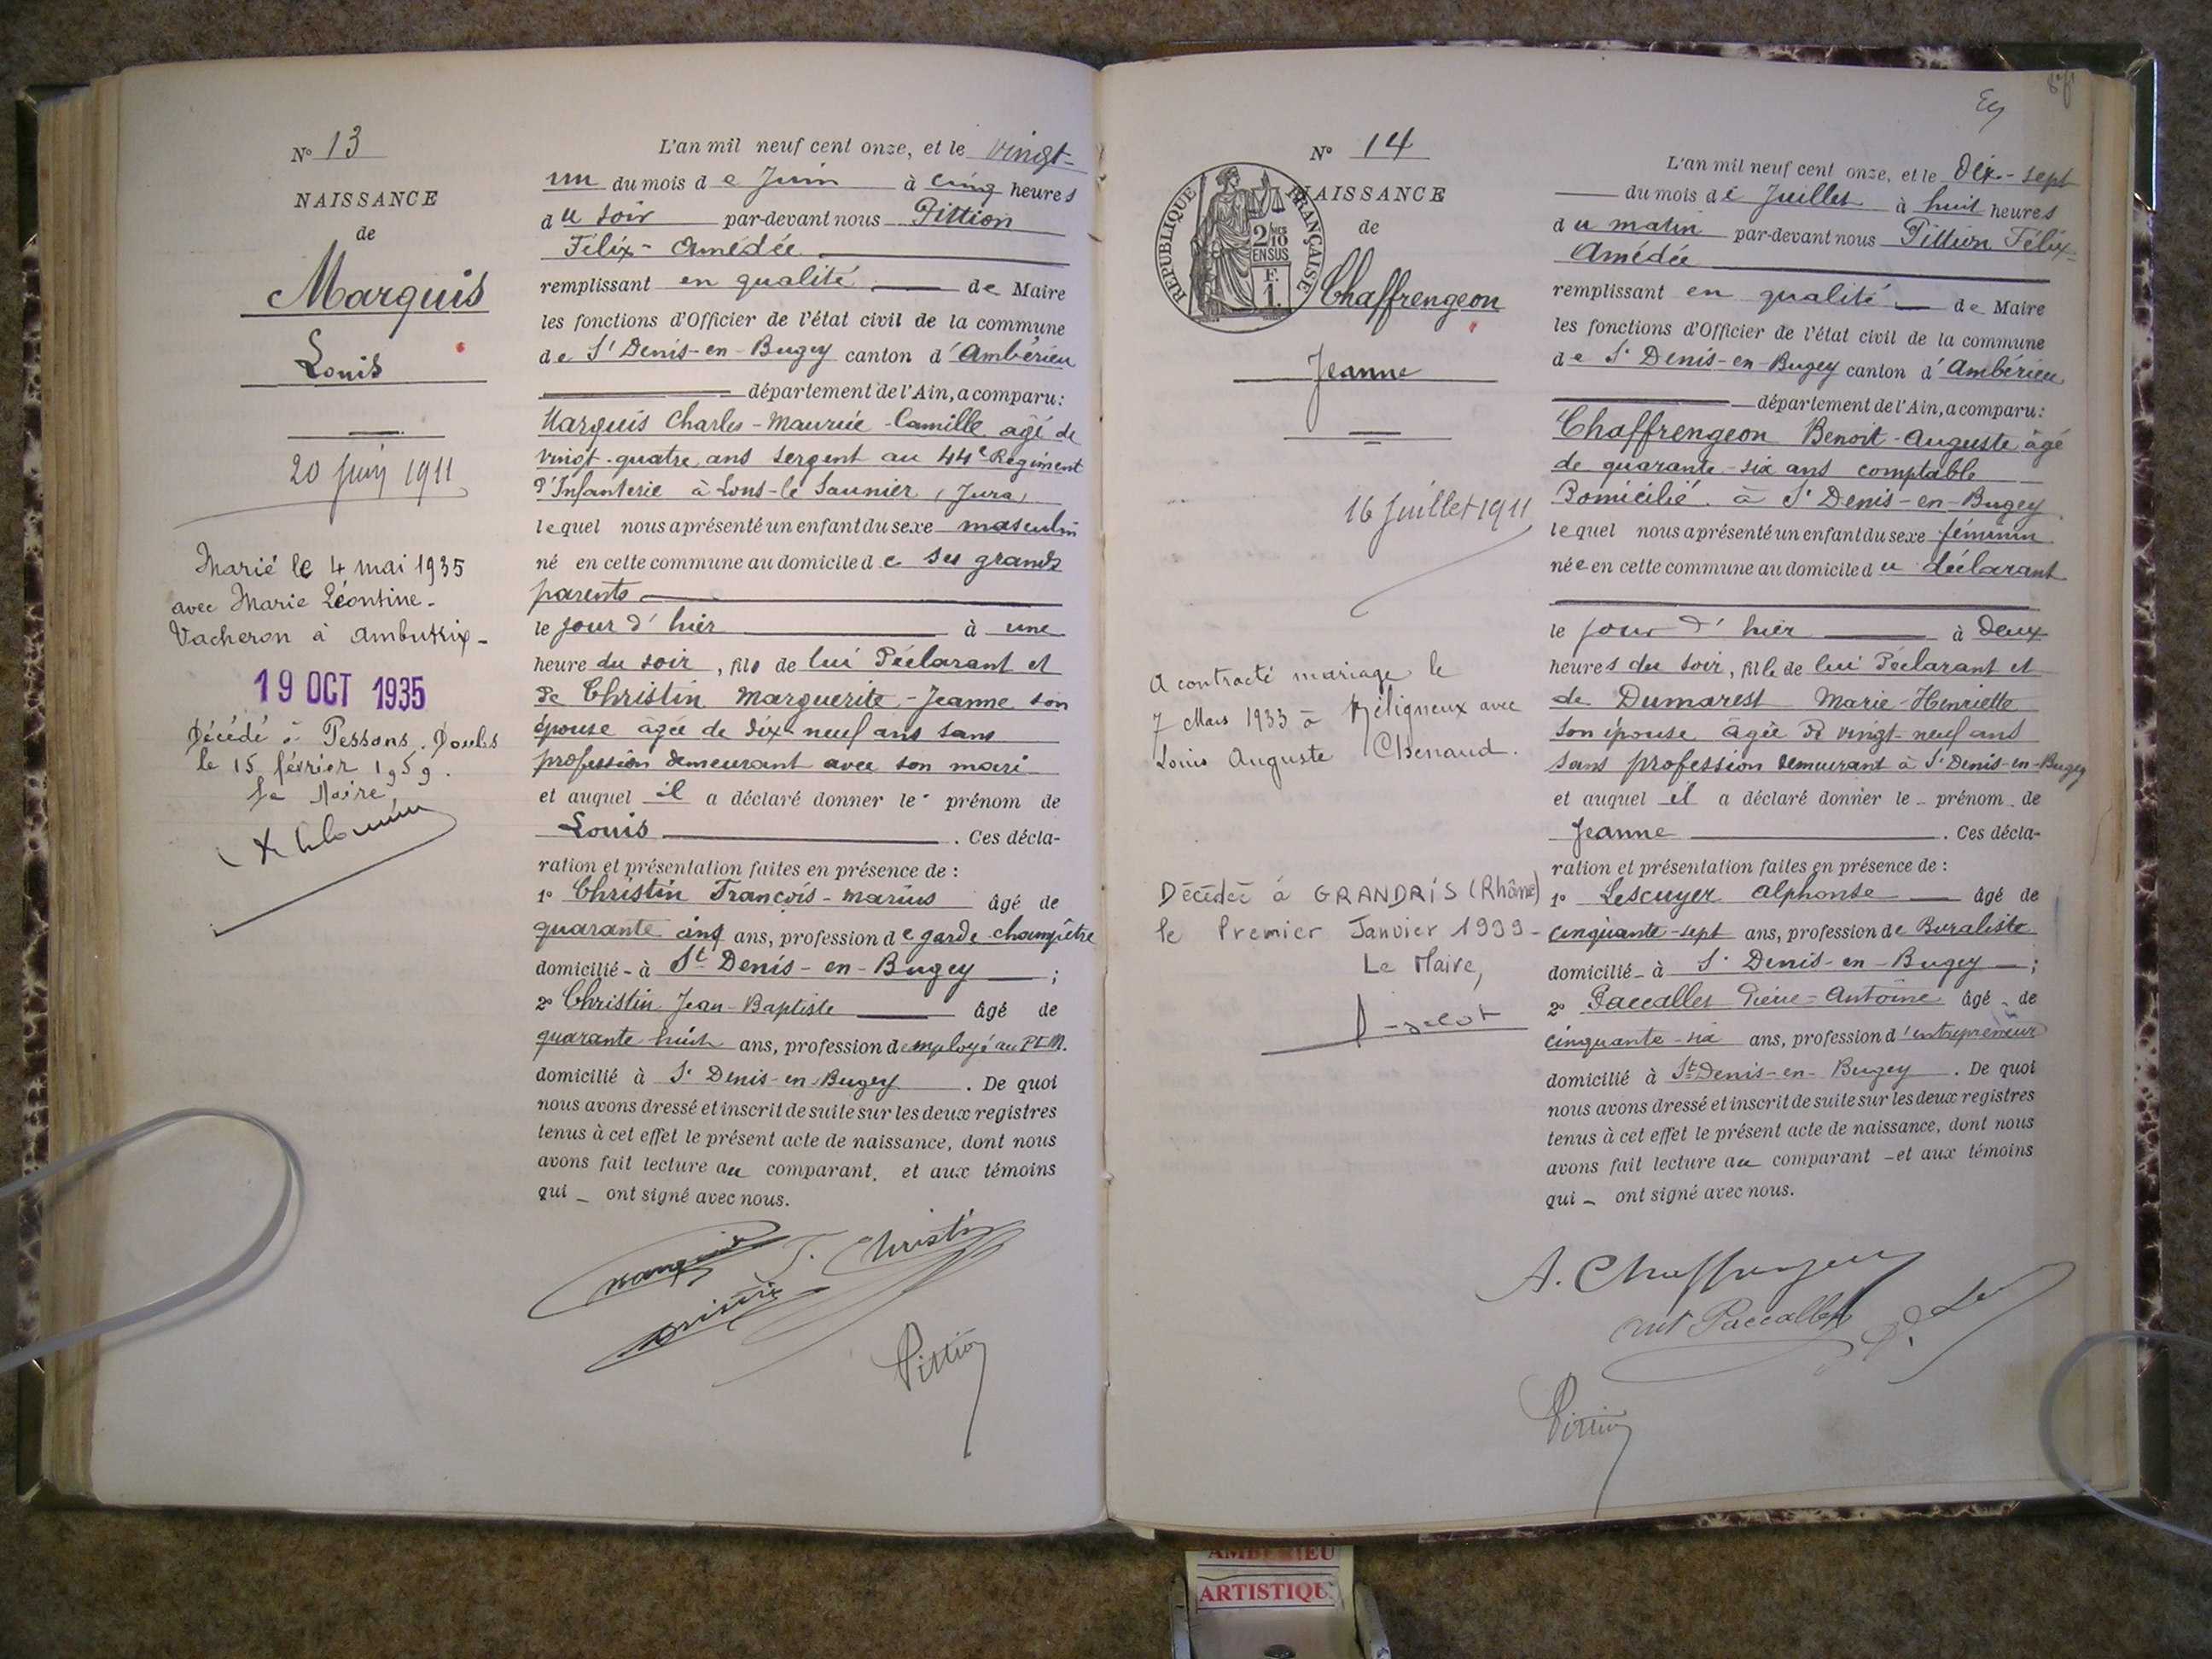 N° 13
NAISSANCE
de
Marquis
Louis
20 juin 1911
Marié le 4 mai 1935
avec Marie Léontine-
Vacheron à Ambutrix-
19 OCT 1935
Décédé à Pessans. Doubs
le 15 février 1959.
Le Maire
L'an mil neuf cent onze, et le vingt-
un du mois de Juin à cinq heures
du soir par-devant nous Pittion
Félix-Amédée
remplissant en qualité de Maire
les fonctions d'Officier de l'état civil de la commune
de St Denis-en-Bugey canton d'Ambérieu
département de l'Ain, a comparu:
Marquis Charles-Maurice-Camille âgé de
vingt-quatre ans sergent au 44e Régiment
d'Infanterie à Lons-le Saunier (Jura)
lequel nous a présenté un enfant du sexe masculin
né en cette commune au domicile de ses grands
parents
le jour d'hier à une
heure du soir, fils de lui Déclarant et
de Christin Marguerite-Jeanne son
épouse âgée de dix-neuf ans sans
profession demeurant avec son mari
et auquel il a déclaré donner le prénom de
Louis . Ces décla-
ration et présentation faites en présence de :
1° Christin François-Marius âgé de
quarante cinq ans, profession de garde champêtre
domicilié-à St Denis-en-Bugey ;
2° Christin Jean-Baptiste âgé de
quarante huit ans, profession d employé au PLM.
domicilié à St Denis-en-Bugey . De quoi
nous avons dressé et inscrit de suite sur les deux registres
tenus à cet effet le présent acte de naissance, dont nous
avons fait lecture au comparant, et aux témoins
qui - ont signé avec nous.
Marquis F. Christin
Pittion
N° 14
RÉPUBLIQUE FRANÇAISE
2/10 EN SUS
F. 1.
NAISSANCE
de
Chaffrengeon
Jeanne
16 Juillet 1911
A contracté mariage le
7 Mars 1933 à Béligneux avec
Louis Auguste Chenaud.
Décédée à GRANDRIS (Rhône)
le Premier Janvier 1999-
Le Maire,
L'an mil neuf cent onze, et le Dix-sept
du mois de Juillet à huit heures
du matin par-devant nous Pittion Félix-
Amédée
remplissant en qualité de Maire
les fonctions d'Officier de l'état civil de la commune
de St Denis-en-Bugey canton d'Ambérieu
département de l'Ain, a comparu:
Chaffrengeon Benoit-Auguste âgé
de quarante-six ans comptable
Domicilié à St Denis-en-Bugey
lequel nous a présenté un enfant du sexe féminin
née en cette commune au domicile du déclarant
le jour d'hier à Deux
heures du soir, fille de lui Déclarant et
de Dumarest Marie-Henriette
son épouse âgée de vingt-neuf ans
sans profession demeurant à St Denis-en-Bugey
et auquel il a déclaré donner le prénom de
Jeanne . Ces décla-
ration et présentation faites en présence de :
1° Lescuyer Alphonse âgé de
cinquante-sept ans, profession de Buraliste
domicilié-à St Denis-en-Bugey ;
2° Paccallet Pierre-Antoine âgé de
cinquante-six ans, profession d'entrepreneur
domicilié à St Denis-en-Bugey . De quoi
nous avons dressé et inscrit de suite sur les deux registres
tenus à cet effet le présent acte de naissance, dont nous
avons fait lecture au comparant - et aux témoins
qui - ont signé avec nous.
A. Chaffrengeon
Ant Paccallet
Pittion
AMBERIEU
ARTISTIQU